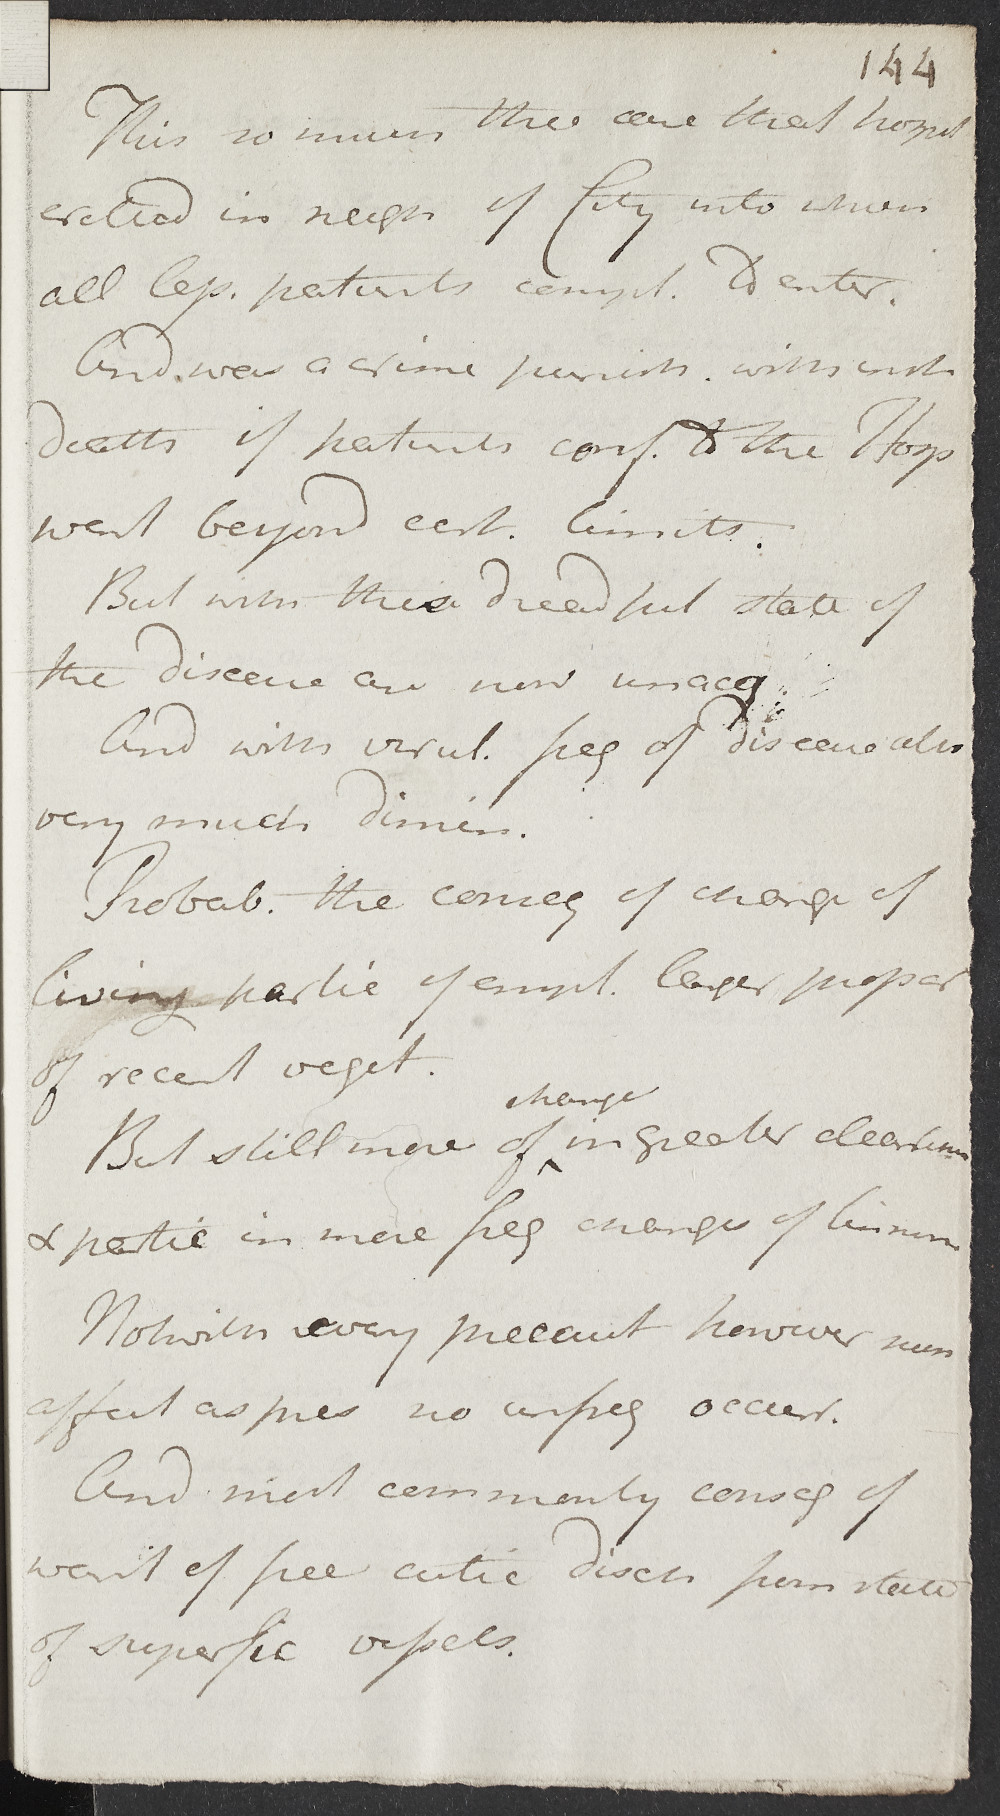 144
This so much the case that hospit
erected in neigh of City into which
all lep. patients compl. to enter.
And was a crime punish. with inst
death if patients conf. to the Hosp
went beyond cert. limits.
But with this dreadful state of
the disease are now unacq
And with virul. freq of disease also
very much dimin.
Probab. the conseq of change of
living partic of empl. larger propor
of recent veget.
But still more of change in greater cleanliness
& partic in more freq change of linnen
Notwith every precaut however such
affect as pres no unfreq occurr.
And most commonly conseq of
want of free cutic disch from state
of superfic vessels.